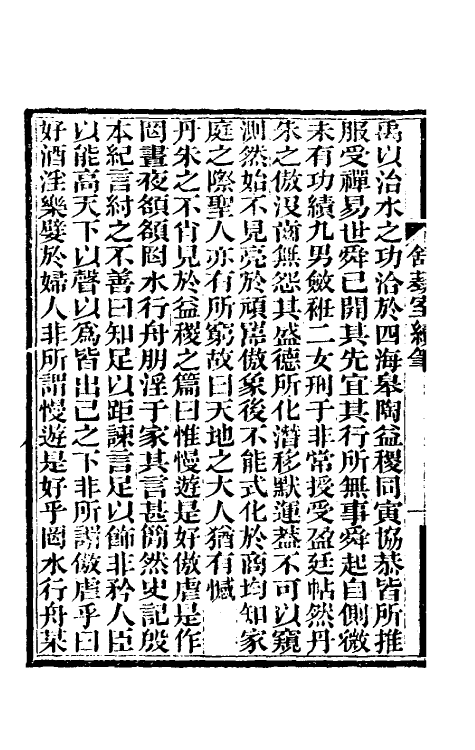 舒藝室續筆
禹以治水之功洽於四海皋陶益稷同寅協恭皆所推
服受禪易世舜已開其先宜其行所無事舜起自側微
未有功績九男斂衽二女刑于非常授受盈廷帖然丹
朱之傲沒齒無怨其盛德所化潛移默運葢不可以窺
測然始不見亮於頑嚚傲象後不能式化於商均知家
庭之際聖人亦有所窮故曰天地之大人猶有憾
丹朱之不肖見於益稷之篇曰惟慢遊是好傲虐是作
罔晝夜頟頟罔水行舟朋淫于家其言甚簡然史記殷
本紀言紂之不善曰知足以距諫言足以飾非矜人臣
以能高天下以聲以爲皆出己之下非所謂傲虐乎曰
好酒淫樂嬖於婦人非所謂慢遊是好乎罔水行舟某